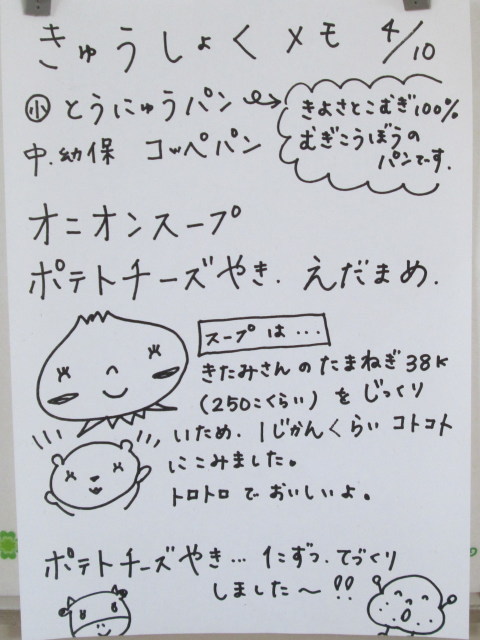 きゅうしょくメモ 4/10
小 とうにゅうパン
きよさとこむぎ100%
むぎこうぼうの
パンです.
中.幼保 コッペパン
オニオンスープ
ポテトチーズやき. えだまめ.
スープは...
きたみさんのたまねぎ38K
(250こくらい)をじっくり
いため. 1じかんくらいコトコト
にこみました。
トロトロでおいしいよ。
ポテトチーズやき... 1こずつ. てづくり
しました〜!!